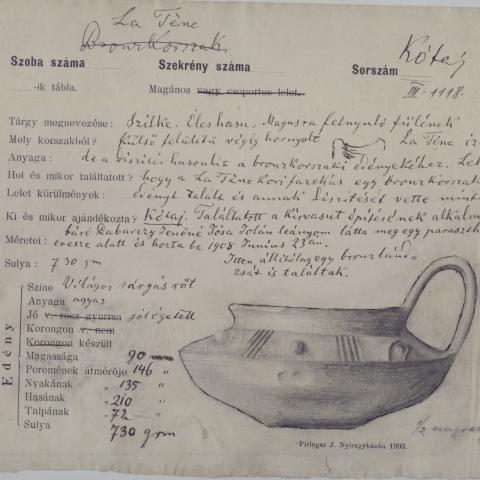 La Tène
Bronzkorszak
Kótaj
Szoba száma
Szekrény száma
Sorszám
-ik tábla.
Magános vagy csoportos lelet.
III. 1118.
Tárgy megnevezése: Szilke. Éles hasu, Magasra felnyuló fülének
Mely korszakból? külső felületű végig hornyolt La Tène
Anyaga: de a díszítés hasonlít a bronzkorszaki edényekéhez.
Hol és mikor találtatott? hogy a La Tène kori fazekas egy bronzkorszak
Lelet körülmények: edényt talált és annak díszítését vette
Ki és mikor ajándékozta? Kótaj. Találtatott a Kisvasut építésének
báró Jenőné Jósa Jolán leányom látta meg egy
Méretei: eresze alatt és hozta be 1908 Junius 23án.
Itten állítólag egy bronz
Sulya: 730 gm
zsát is találtak.
Edény
Színe Világos sárgás
Anyaga agyag
Jó v. rosz gyurma
Korongon v. nem
Korongon készült
Magassága 90 mm
Peremének átmérője 146 "
Nyakának " 135 "
Hasának " 210 "
Talpának " 72 "
Sulya 730 grm
Piringer J. Nyiregyházán 1903.